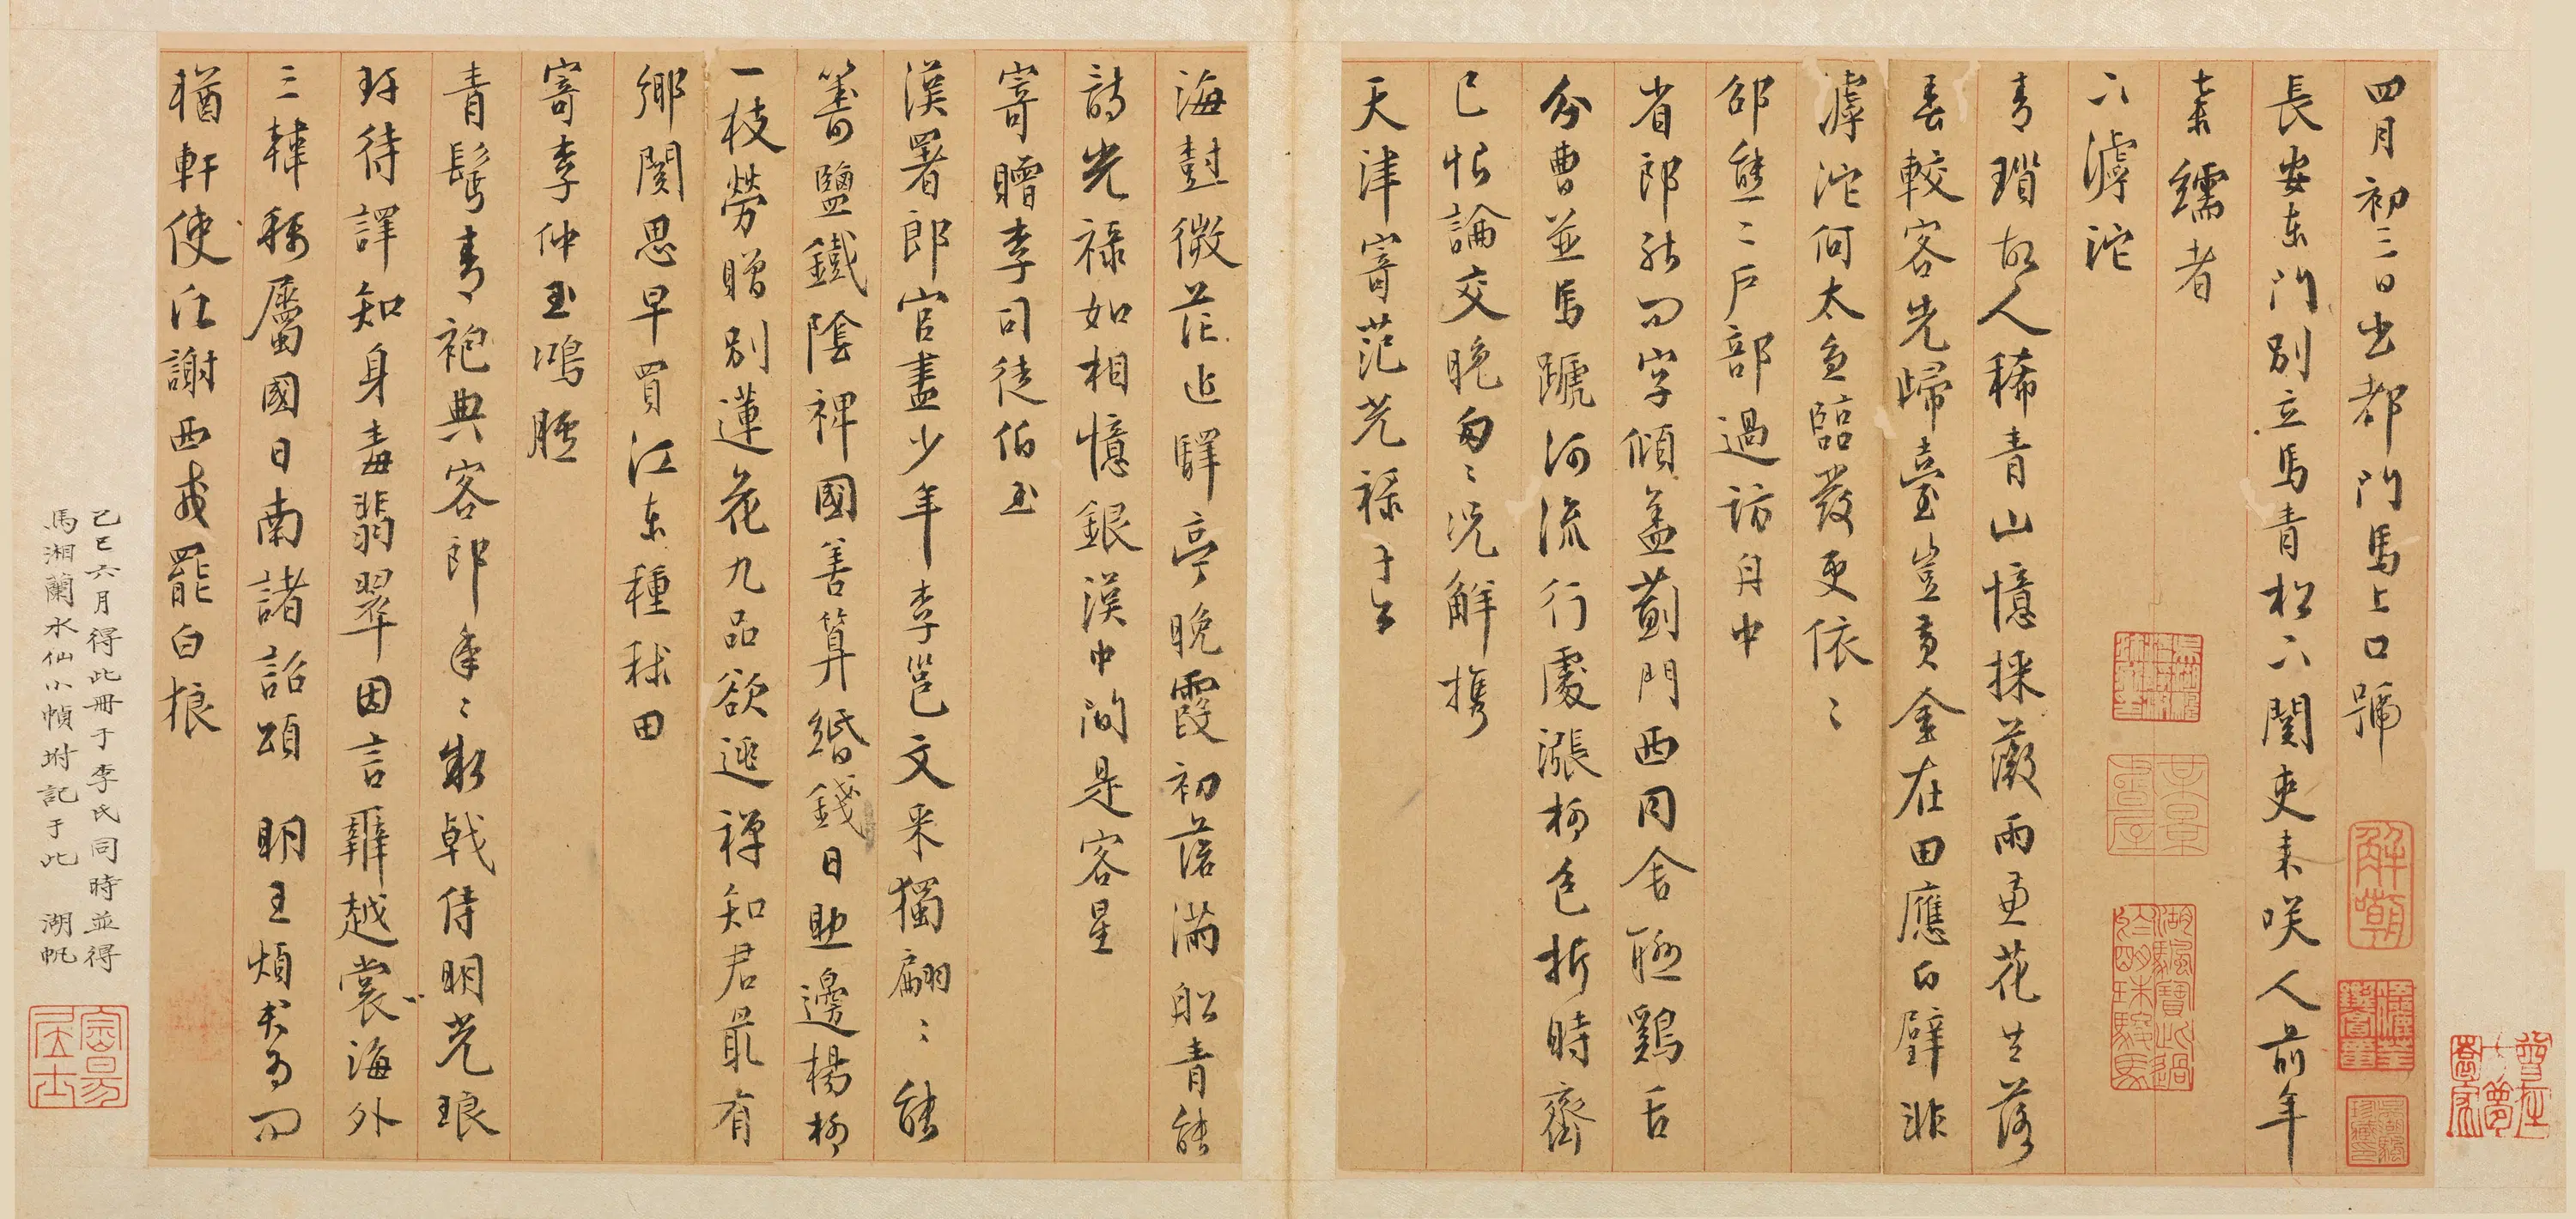 四月初三日出都門馬上口號
長安東門別立馬青松下關吏來咲人前年
棄繻者
下滹沱
青瑣故人稀青山憶採薇雨兼花共落
春較客先歸臺豈黃金在田應白璧非
滹沱何太急臨發更依〻
邵熊二戶部過訪舟中
省郎能問字傾蓋薊門西同舍聽鷄舌
分曹並馬蹏河流行處漲柳色折時齊
已恨論交晚匆〻况解攜
天津寄范光祿子占
海封微茫近驛亭晚霞初落滿船青能
詩光祿如相憶銀漢中間是客星
寄贈李司徒伯玉
漢署郎官盡少年李邕文采獨翩〻能
籌鹽鐵陰裨國善算緡錢日助邊楊柳
一枝勞贈別蓮花九品欲逃禪知君最有
鄉關思早買江東種秫田
寄李仲玉鴻臚
青髩青袍典客郎年〻執戟侍明光琅
玕待譯知身毒翡翠因言辨越裳海外
三韓稱屬國日南諸詔頌 明王煩君為問
輶軒使
謝西戎罷白狼
己巳六月得此冊于李氏同時並得
馬湘蘭水仙小幀坿記于此 湖帆